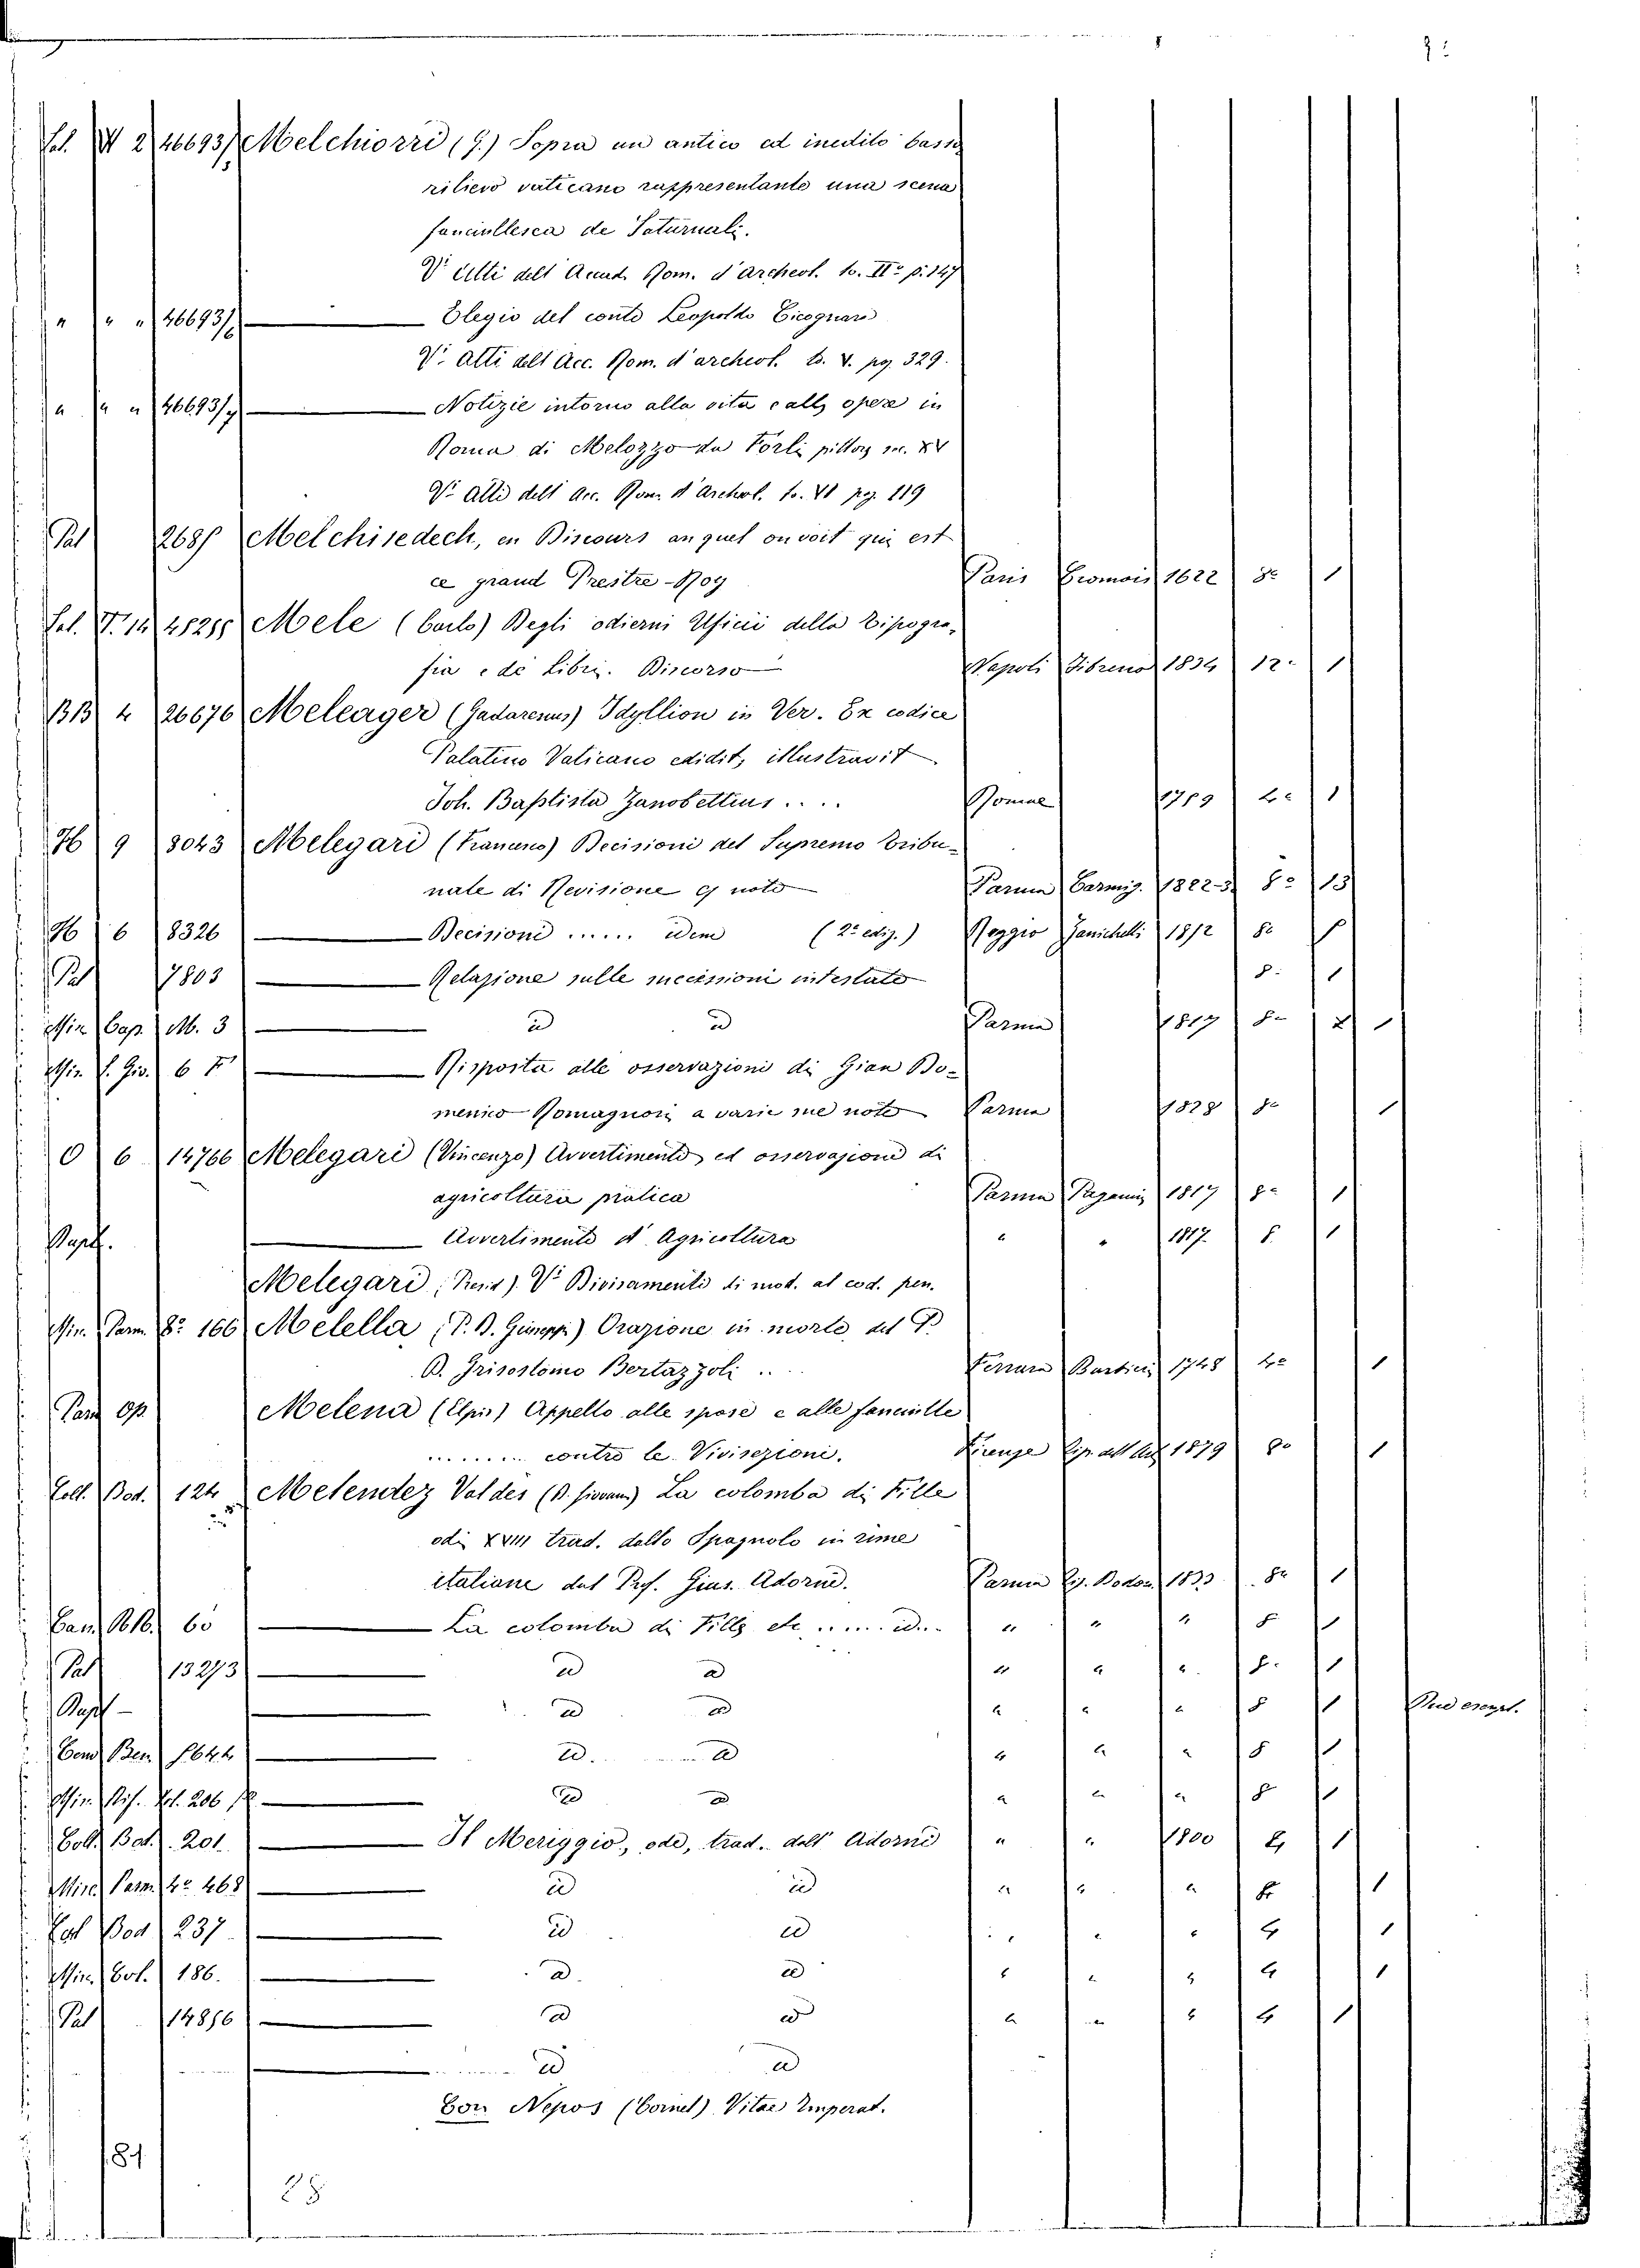 Sal. W 2 46693/5 Melchiorri (G.) Sopra un antico ed inedito basso
rilievo vaticano rappresentante una scena
fanciullesca de Saturnali.
V. Atti dell Accad. Rom. d'archeol. to. II. p. 147
" " " 46693/6 Elogio del conte Leopoldo Cicognara
V. Atti dell Acc. Rom. d'archeol. to. V. pg. 329.
" " " 46693/7 Notizie intorno alla vita e alle opere in
Roma di Melozzo da Forlì pittore XV
V. Atti dell Acc. Rom. d'Archeol. to. VI pg. 119
Pal 268 Melchisedech, en Discours auquel on voit qui est
ce grand Prestre-Roy Paris Cromois 1622 8° 1
Sal. T. 14 Mele (Carlo) Degli odierni Uficii della Tipogra-
fia e de Libri. Discorso Napoli Tibreno 1834 12° 1
BB 4 26676 Meleager (Gadarenus) Idyllion in Ver. Ex codice
Palatino Vaticano edidit, illustravit
Joh. Baptista Zanobettius.... Romae 1759 4° 1
H 9 3043 Melegari () Decisioni del Supremo Tribu-
nale di Revisione e note Parma Carmig. 1822-3 8° 13
H 6 8326 Decisioni ...... idem (2ª ediz.) Reggio 8°
Pal 7803 Relazione sulle successioni intestate 8° 1
Min Cap. M. 3 id id Parma 1817 8°
Min. f. Gio. 6 Risposta alle osservazioni di Gian Do-
menico Romagnosi a varie sue note Parma 1828 8° 1
O 6 14766 Melegari (Vincenzo) Avvertimenti ed osservazioni di
agricoltura pratica Parma Paganini 1817 8° 1
Avvertimenti d'Agricoltura " " 1817. 8. 1
Melegari (Presid). V. Divisamenti di mod. al cod. pen.
Min. Parm. 8° 166 Melella (P. D. Giuseppe) Orazione in morte del P.
D. Grisostomo Bertazzoli .. Ferrara 1748 4° 1
Parm Op. Melena (Elpis) Appello alle spose e alle fanciulle
........ contro le Vivisezioni. Firenze Tip. 1879 8° 1
Coll. Bod. 124 Melendez Valdes (D. Giovanni) La colomba di Fille
odi XVIII trad. dallo Spagnolo in rime
italiane dal Prof. Gius. Adorni. Parma Tip. Bodon. 1833 8° 1
60 La colomba di Fille etc ..... id.. " " " 8 1
Pal 13273 id id " " " 8. 1
id id " " " 8 1 Due esempl.
Ben 1644 id. id " " " 8 1
Min. 206 id id " " " 8 1
Coll. Bod. 201. Il Meriggio, ode, trad. dall' Adorni " " 1800 4 1
Misc. Parm. 4° 468 id id " " " 8 1
Col Bod 237. id id " " " 4 1
Min. Col. 186. id id " " " 4 1
Pal 14856 id id " " " 4 1
id id
Con Nepos (Cornel) Vitae Imperat.
81
28